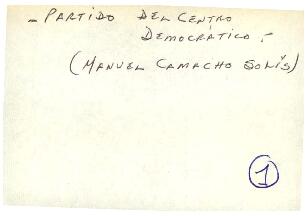 - PARTIDO DEL CENTRO
DEMOCRÁTICO -
(MANUEL CAMACHO SOLÍS)
1